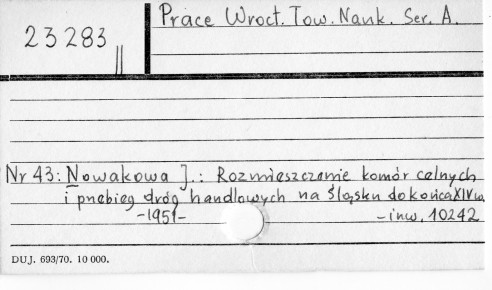 23283 ||
Prace Wrocł. Tow. Nauk. Ser. A.
Nr 43: Nowakowa J.: Rozmieszczenie komór celnych
i przebieg dróg handlowych na Śląsku do końca XIV w.
-1951-
-inw. 10242
DUJ. 693/70. 10 000.